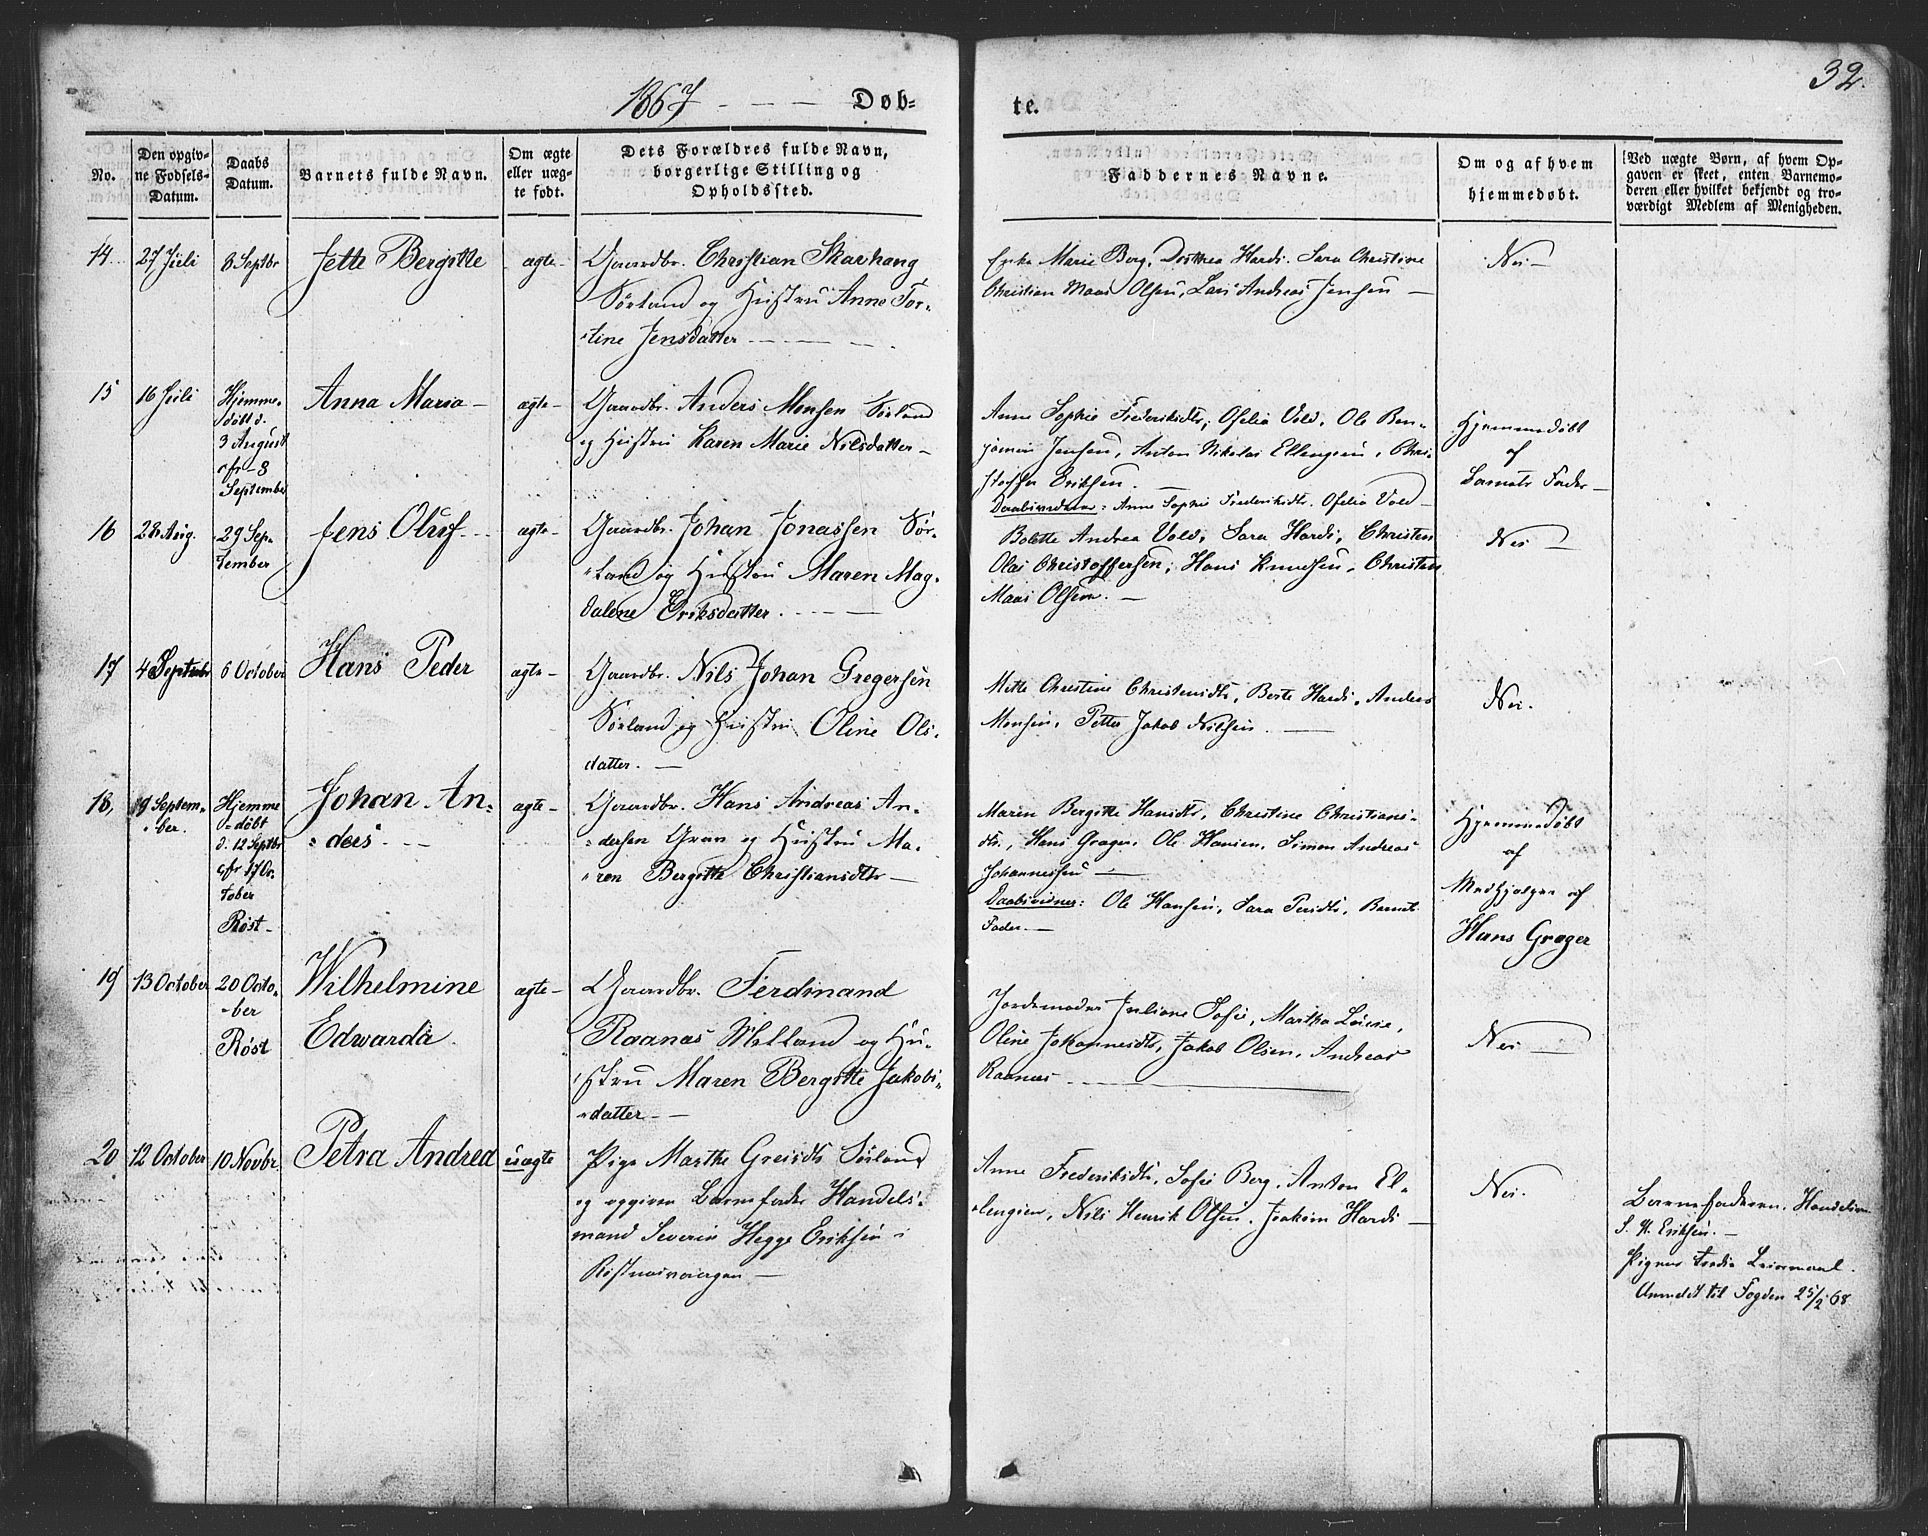 1867 - - - Døb-
te.
32.
No.
Den opgiv-
ne Fødsels-
Datum.
Daabs
Datum.
Barnets fulde Navn.
Om ægte
eller uæg-
te født.
Dets Forældres fulde Navn,
borgerlige Stilling og
Opholdssted.
Faddernes Navne.
Om og af hvem
hjemmedøbt.
Ved uægte Børn, af hvem Op-
gaven er skeet, enten Barnemo-
deren eller hvilket bekjendt og tro-
værdigt Medlem af Menigheden.
14.
27 Juli
8 Septbr
Jette Bergitte
ægte-
Gaardbr. Christian Skarhang
Sørland og Hustru Anne Tor-
-tine Jensdatter - - -
Marie Berg, Dorthea Hardi. Sara Christine
Christian Maas Olsen, Lars Andreas Jensen -
Nei -
15
16 Juli
Hjemme-
døbt d.
3 August
cfr - 8
September
Anna Maria -
ægte-
Gaardbr. Anders Monsen Sørland
og Hustru Karen Marie Nilsdatter -
Anne Sophie Frederiksdtr, Ofelia Vold, Ole Ben-
jamin Jensen, Anton Nikolai Ellingsen, Chri-
stoffer Eriksen. -
Daabsvidner: Anne Sophie Frederiksdtr. Ofelia Vold -
Hjemmedøbt
af
Barnets Fader -
16
28 Aug.
29 Sep-
tember
Jens Oluf - -
ægte-
Gaardbr. Johan Jonassen Sør-
-land og Hustru Maren Mag-
dalene Eriksdatter. - - -
Bolette Andrea Vold, Sara Hardi, Christen
Olai Christoffersen, Hans Knudsen, Christen
Maas Olsen. -
Nei -
17
4 Septembr
6 October
Hans Peder
ægte-
Gaardbr. Nils Johan Gregersen
Sørland og Hustru Oline Ols-
datter. -
Mette Christine Christensdtr, Berte Hardi, Anders
Monsen, Petter Jakob Nilsen. -
Nei.
18,
19 Septem-
-ber.
Hjemme
-døbt
d. 12 Septbr
cfr 17 Oc-
tober
Røst -
Johan An-
-ders - -
ægte-
Gaardbr. Hans Andreas An-
-dersen og Hustru Ma-
-ren Bergitte Christiansdtr -
Maren Bergitte Hansdtr, Christine Christians-
dtr., Hans Grøger. Ole Hansen, Simon Andreas
Johannessen -
Daabsvidner: Ole Hansen, Sara Persdtr, Barnets
Fader. -
Hjemmedøbt
af
Medhjælper af
Hans Grøger
19
13 October
20 Octo-
-ber
Røst
Wilhelmine
Edwarda.
ægte-
Gaardbr. Ferdinand
Raanas og Hu-
-stru Maren Bergitte Jakobs-
-datter - -
Jordemoder Juliane Sofie, Martha Lovise,
Oline Johannesdtr, Jakob Olsen, Andreas
Raanas - - -
Nei -
20
12 October
10 Novbr.
Petra Andrea
uægte
Pige Marthe Greisdtr Sørland
og opgiven Barnefader Handels-
mand Severin Hegge Eriksen i
Anne Frederiksdtr, Sofie Berg, Anton El-
-lengsen, Nils Henrik Olsen, Joakim Hardi -
Nei.
Barnefaderen, Handelsm.
S. H. Eriksen. -
Pigens tredie Leiermaal.
Anmeldt til Fogden 25/2 68